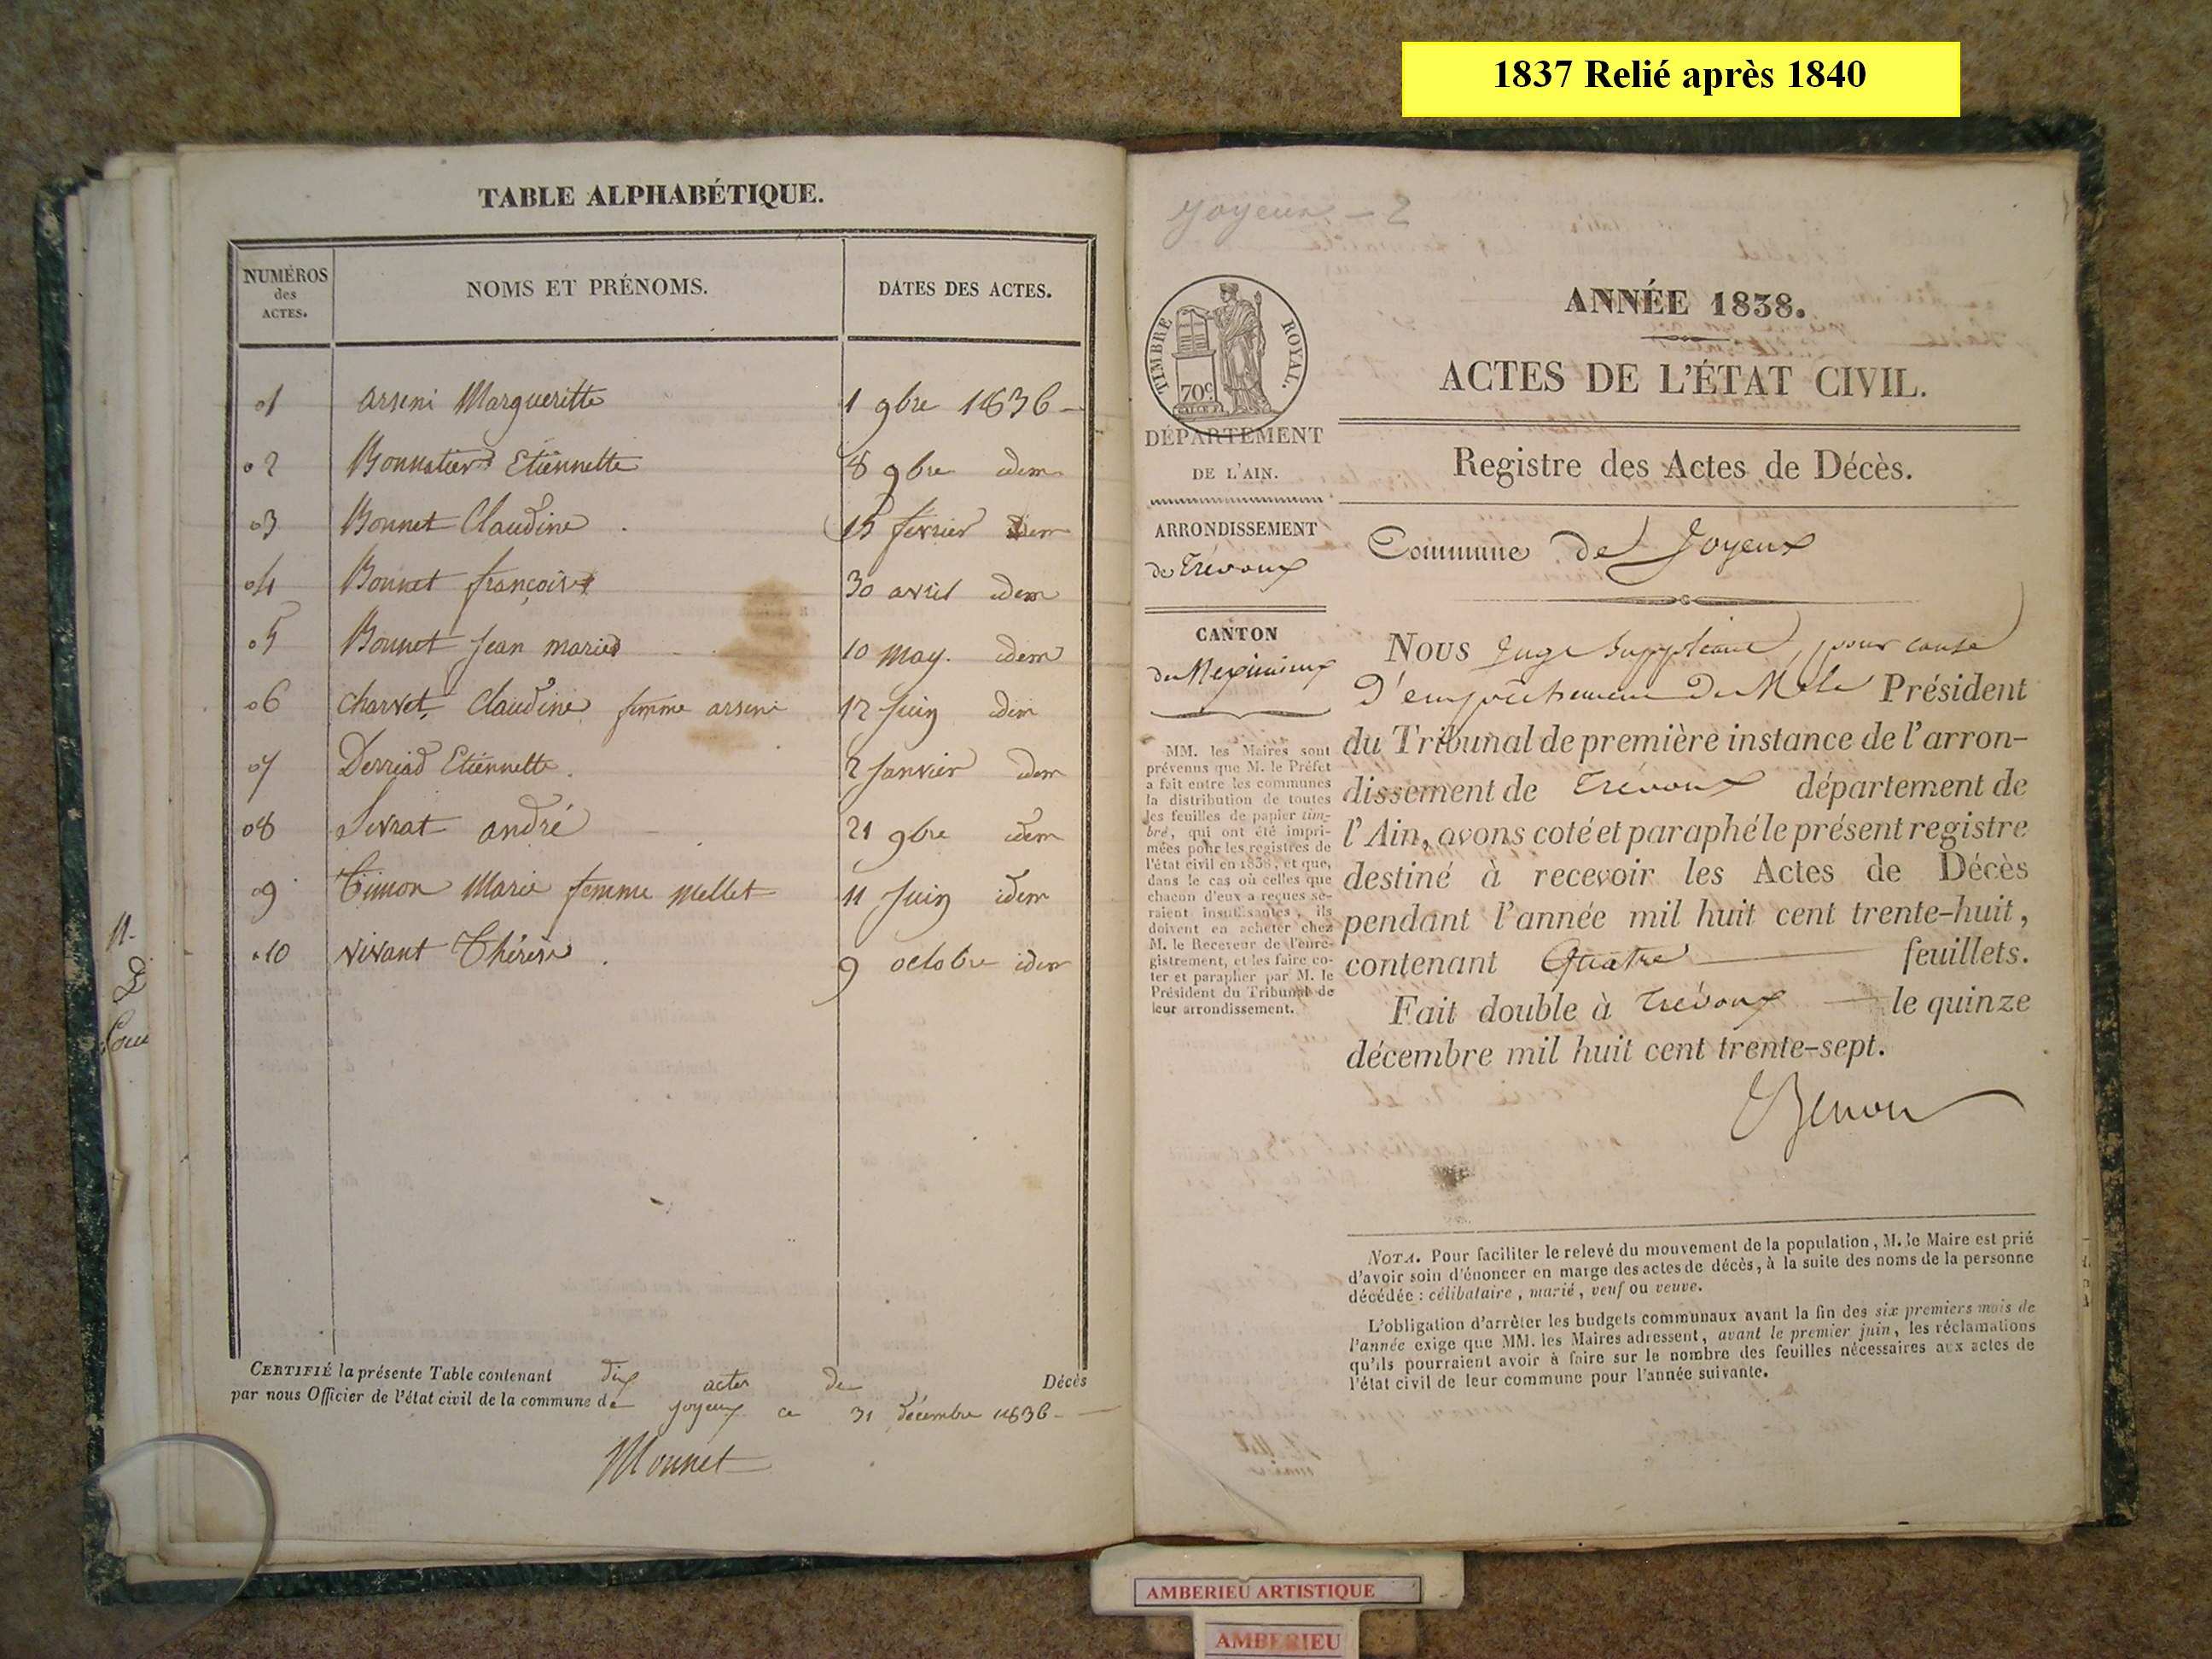 1837 Relié après 1840
TABLE ALPHABÉTIQUE.
NUMÉROS des ACTES. NOMS ET PRÉNOMS. DATES DES ACTES.
01 arseni Margueritte 1 9bre 1836
02 Bonnatier Etiennette 8 9bre idem
03 Bonnet Claudine 15 fevrier idem
04 Bonnet françois 30 avril idem
05 Bonnet Jean marie 10 may. idem
06 Charvet Claudine femme arseni 12 Juin idem
07 Derriad Etiennette. 2 Janvier idem
08 Sevrat andré 21 9bre idem
09 Timon Marie femme Mellet 11 Juin idem
10 vivant Thérèse 9 octobre idem
CERTIFIÉ la présente Table contenant dix actes de Décès
par nous Officier de l'état civil de la commune de joyeux ce 31 décembre 1836
Monnet
joyeux - 2
TIMBRE ROYAL.
70c
DÉPARTEMENT
DE L'AIN.
ARRONDISSEMENT
de Trévoux
CANTON
de Meximieux
MM. les Maires sont
prévenus que M. le Préfet
a fait entre les communes
la distribution de toutes
les feuilles de papier tim-
bré, qui ont été impri-
mées pour les registres de
l'état civil en 1838, et que,
dans le cas où celles que
chacun d'eux a reçues se-
raient insuffisantes, ils
doivent en acheter chez
M. le Receveur de l'enre-
gistrement, et les faire co-
ter et parapher par M. le
Président du Tribunal de
leur arrondissement.
ANNÉE 1838.
ACTES DE L'ÉTAT CIVIL.
Registre des Actes de Décès.
Commune de Joyeux
NOUS Juge Suppléant, pour cause
D'empêchement De M. le Président
du Tribunal de première instance de l'arron-
dissement de Trévoux département de
l'Ain, avons coté et paraphé le présent registre
destiné à recevoir les Actes de Décès
pendant l'année mil huit cent trente-huit,
contenant Quatre feuillets.
Fait double à Trévoux le quinze
décembre mil huit cent trente-sept.
NOTA. Pour faciliter le relevé du mouvement de la population, M. le Maire est prié
d'avoir soin d'énoncer en marge des actes de décès, à la suite des noms de la personne
décédée : célibataire, marié, veuf ou veuve.
L'obligation d'arrêter les budgets communaux avant la fin des six premiers mois de
l'année exige que MM. les Maires adressent, avant le premier juin, les réclamations
qu'ils pourraient avoir à faire sur le nombre des feuilles nécessaires aux actes de
l'état civil de leur commune pour l'année suivante.
AMBERIEU ARTISTIQUE
AMBERIEU